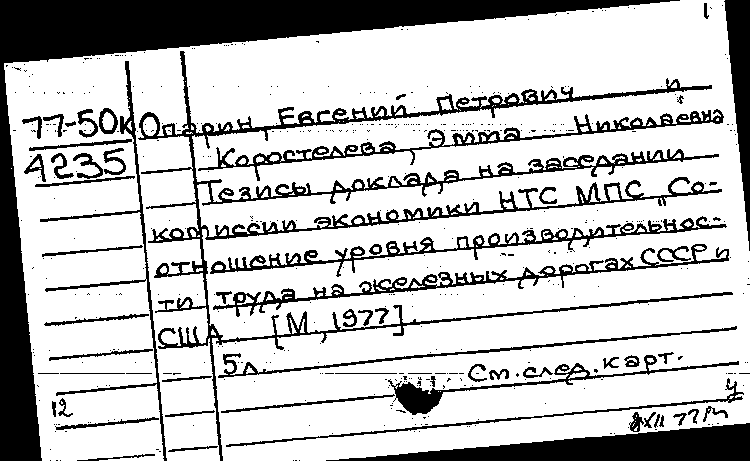 1
77-50к Опарин, Евгений Петрович и
4235 Коростелева, Эмма Николаевна
Тезисы доклада на заседании
комиссии экономики НТС МПС „Со-
отношение уровня производительнос-
ти труда на железных дорогах СССР и
США [М., 1977].
5л.
См. след. карт.
12